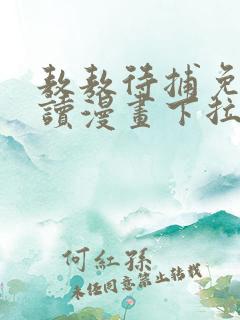 敖敖待捕免
讀漫畫下拉
何紅孫
未经同意禁止转载